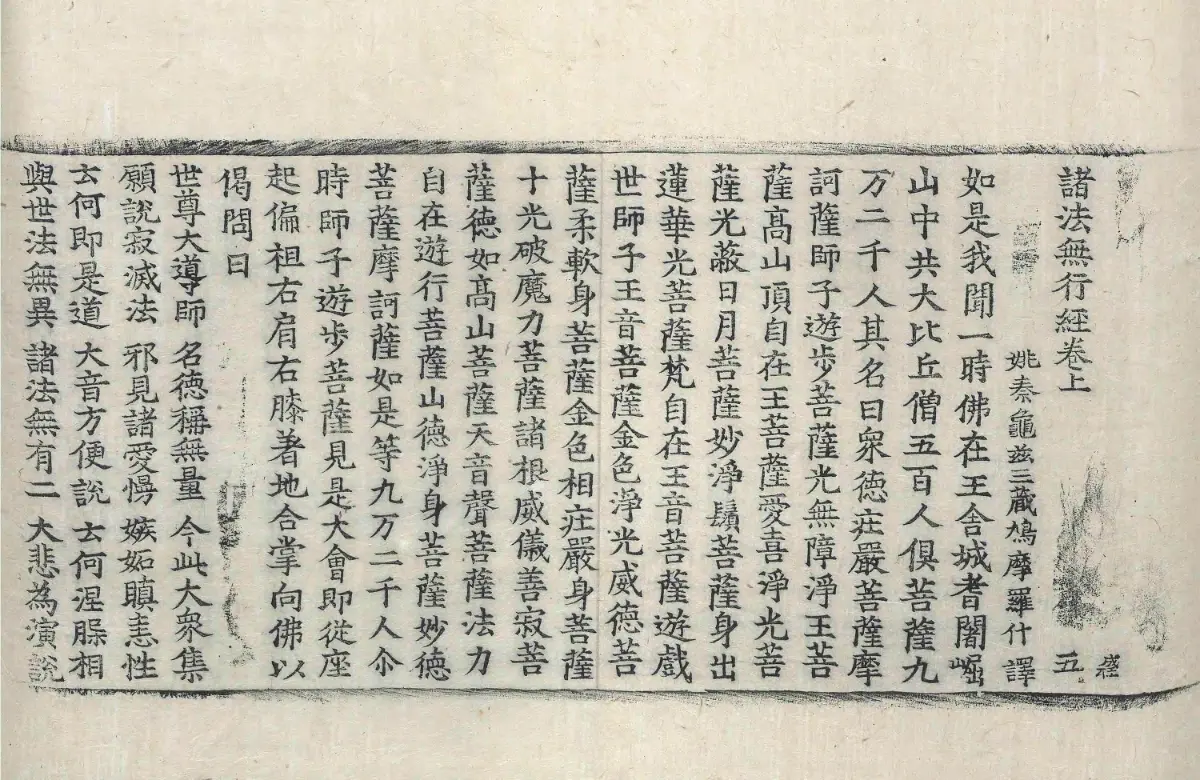 諸法無行經卷上
五
姚秦龜茲三藏鳩摩羅什譯
如是我聞一時佛在王舍城耆闍崛
山中共大比丘僧五百人俱菩薩九
万二千人其名曰衆德莊嚴菩薩摩
訶薩師子遊步菩薩光無障淨王菩
薩高山頂自在王菩薩愛喜淨光菩
薩光蔽日月菩薩妙淨鬚菩薩身出
蓮華光菩薩梵自在王音菩薩遊戲
世師子王音菩薩金色淨光威德菩
薩柔軟身菩薩金色相莊嚴身菩薩
十光破魔力菩薩諸根威儀善寂菩
薩德如高山菩薩天音聲菩薩法力
自在遊行菩薩山德淨身菩薩妙德
菩薩摩訶薩如是等九万二千人尒
時師子遊步菩薩見是大會即從座
起偏袒右肩右膝著地合掌向佛以
偈問曰
世尊大導師 名德稱無量 今此大衆集
願說寂滅法 邪見諸愛慢 嫉妬瞋恚性
云何即是道 大音方便說 云何涅槃相
與世法無異 諸法無有二 大悲為演說